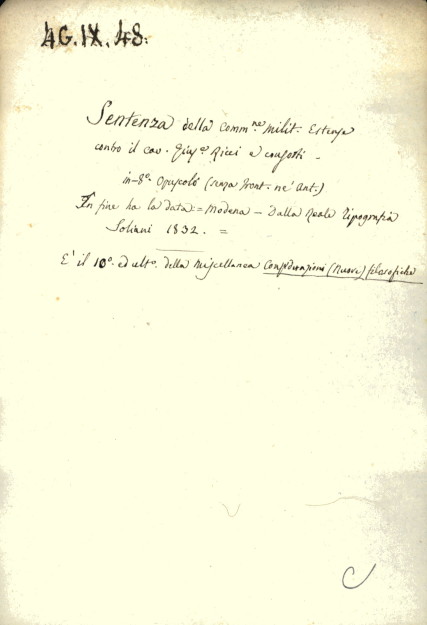 4G.IX.48.
Sentenza della Comm.ne Milit. Estense
contro il cav. Gius.e Ricci e consorti -
in-8.o Opuscolo (senza front. nè ant.)
In fine ha la data: = Modena - Dalla Reale Tipografia
Soliani 1832. =
E' il 10.o ed ult.o della Miscellanea Considerazioni (Nuove) filosofiche